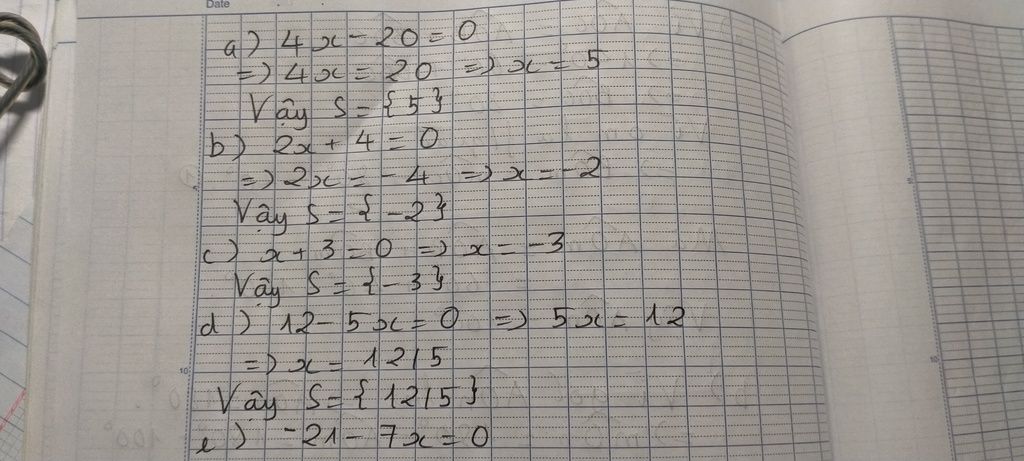 Date
a) 4x - 20 = 0
=> 4x = 20 => x = 5
Vậy S = {5}
b) 2x + 4 = 0
=> 2x = -4 => x = -2
Vậy S = {-2}
c) x + 3 = 0 => x = -3
Vậy S = {-3}
d) 12 - 5x = 0 => 5x = 12
=> x = 12/5
Vậy S = {12/5}
e) -21 - 7x = 0